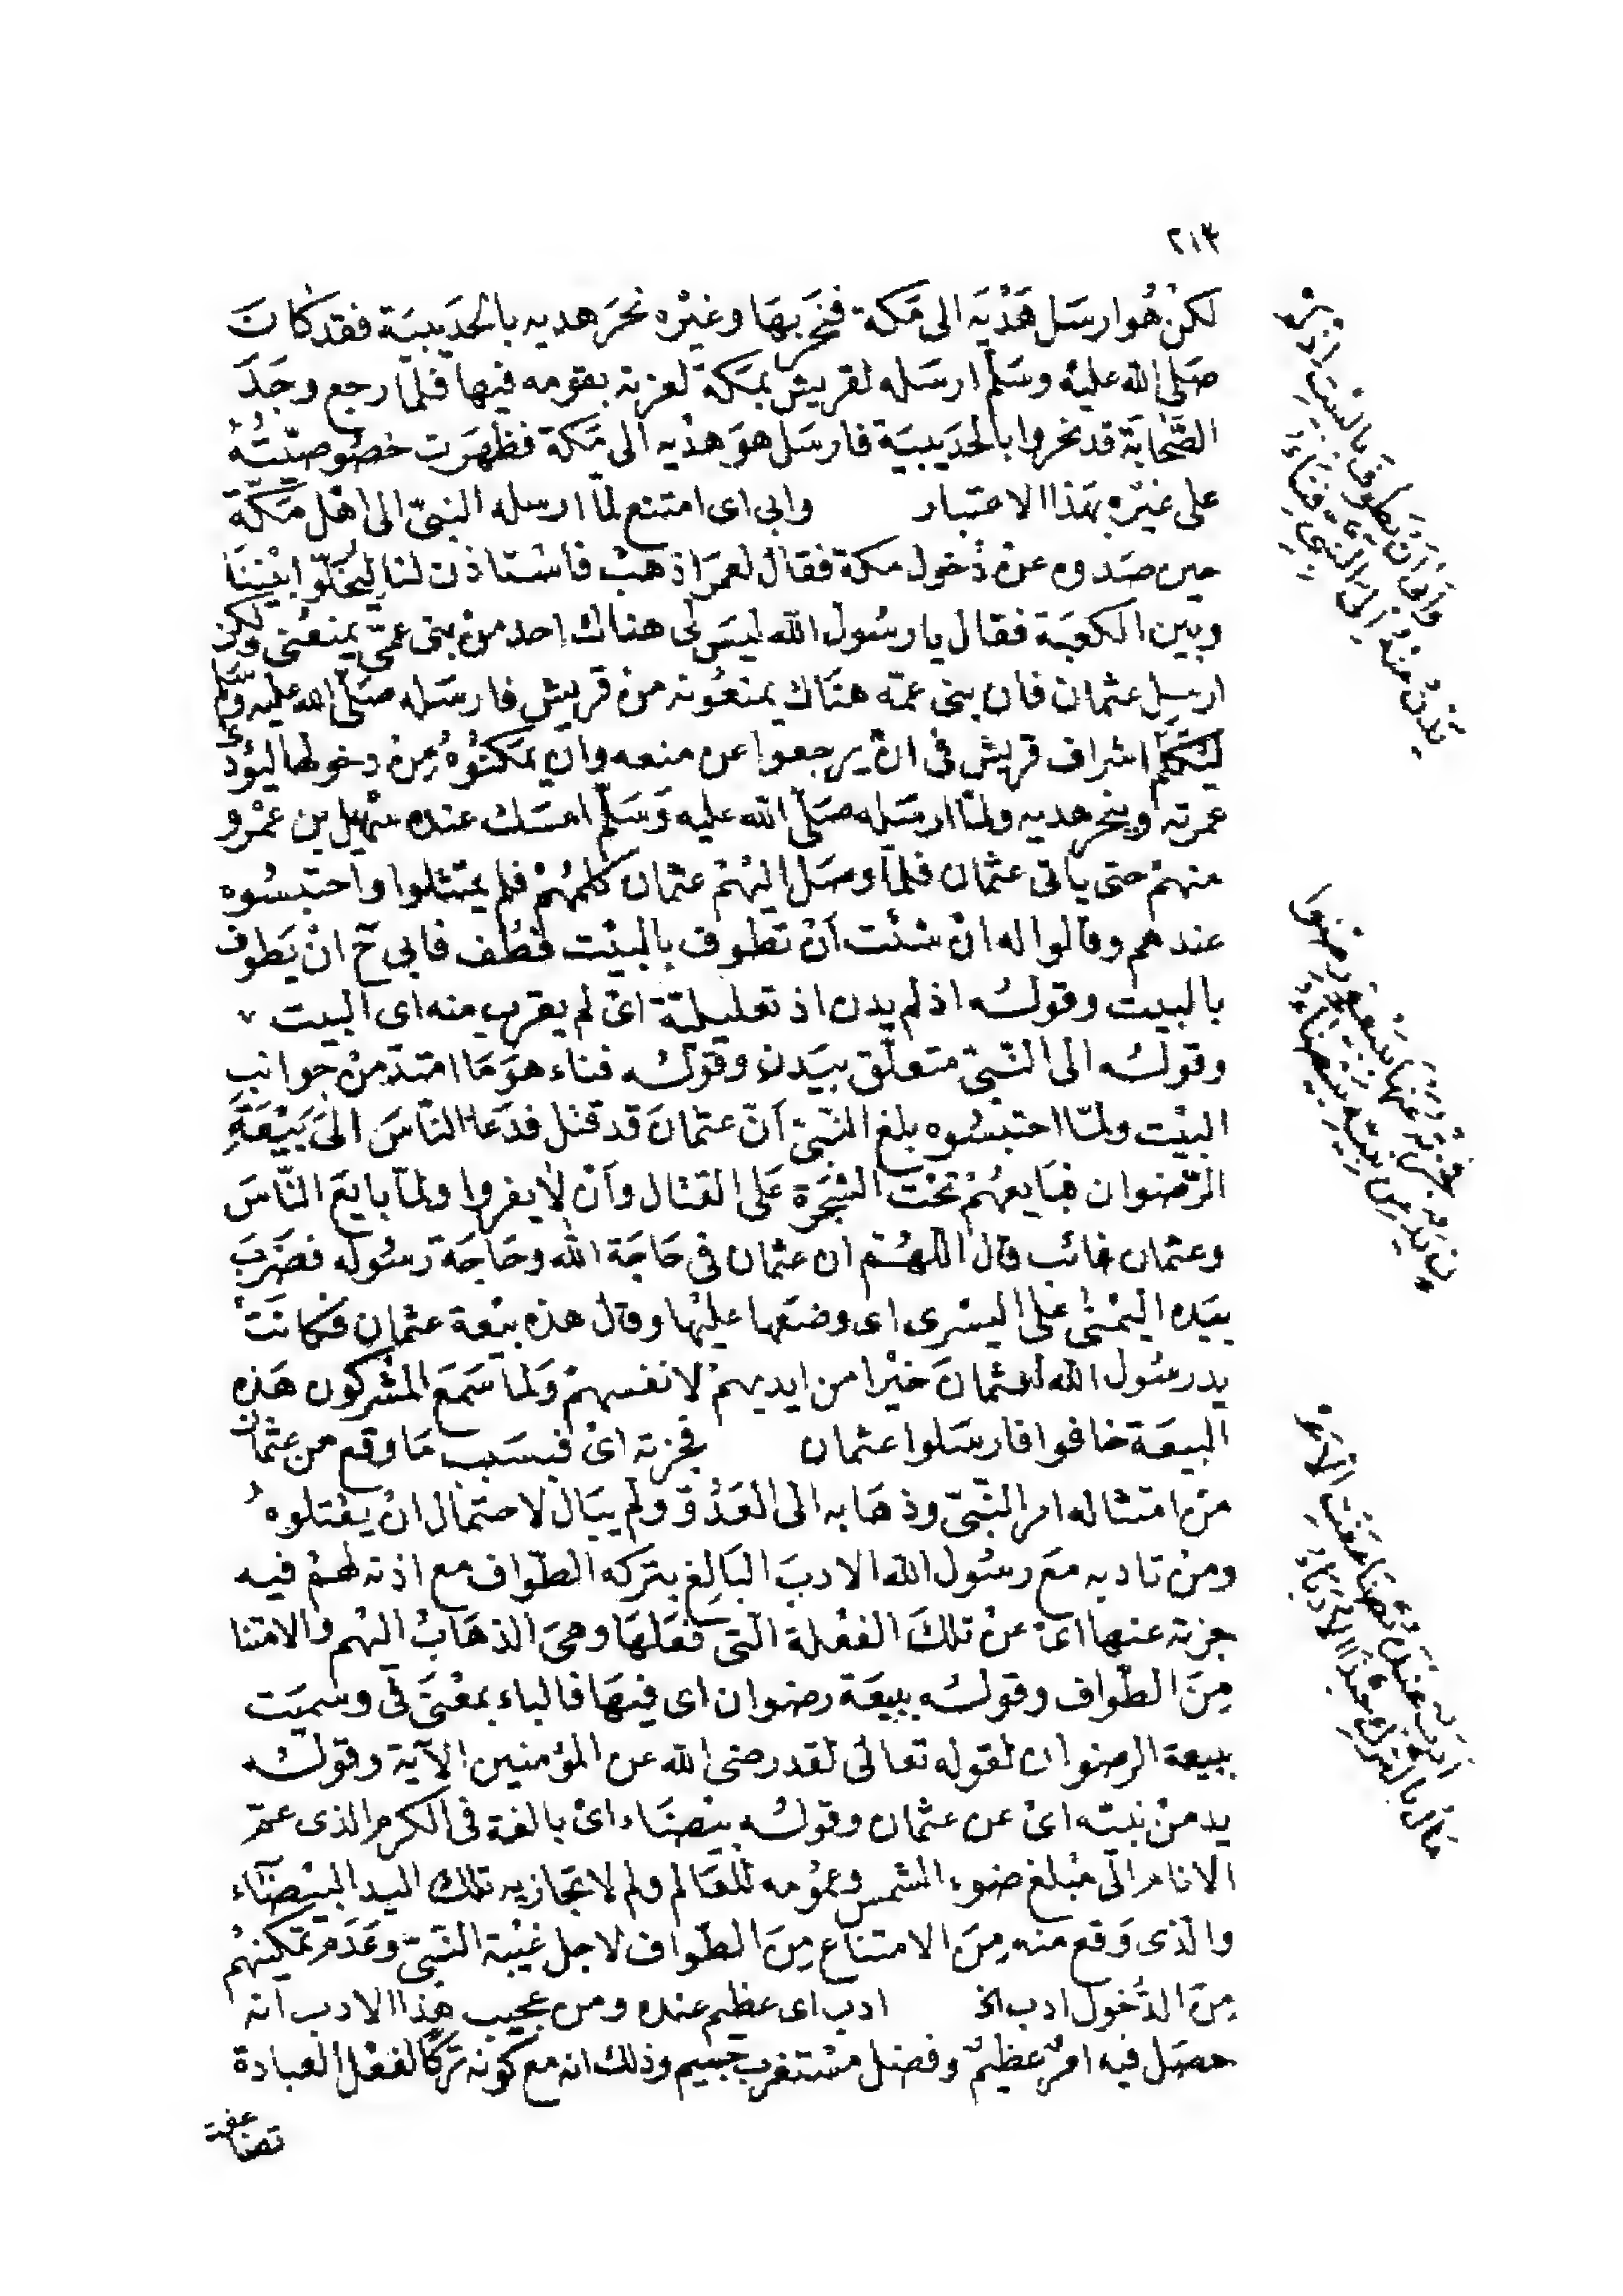 ٢١٣
لكنْ هُوارسَل هَدْيَه الى مَكة فنَحَربهَا وغيْره نحَرَهديه بالحُدَيبيَة فقدكَانَ
صَلى الله عليْه وسَلّم ارسَله لقريش بمَكة لعزته بقومه فيها فلمّا رجع وجَدَ
الصَّحَابَة قد نحروا بالحدَيبيَة فارسَل هوَ هدْيه الى مَكة فظهرَت خصُوصيّتُهُ
على غيْرِه بهَذا الاعتبار وابى اى امتنع لمّا ارسله النبىّ الى اهْل مَكّة
حين صَدوه عنْ دُخول مكة فقال لعمرَ اذهبْ فاسْتاذن لنا ليُخَلّوا بيْننَا
وبين الكعبَة فقال يارسُول الله ليسَ لى هناك احد منْ بنى عمّى يمنعُنى ولكن
ارسِل عثمان فان بنى عمّه هنَاك يمنعُونه منْ قريش فارسَله صَلّى الله عليه وسَلم
ليُكَلّم اشراف قريش فى انْ يرجعوا عن منعه وانْ يمَكنُوهُ مِنْ دخولها ليُؤدّى
عمرته وينحرهديه ولمّا ارسَله صَلّى الله عليه وَسَلّم امسَك عنده سُهيْل بن عمْرو
منهمْ حتى ياتى عثمان فلمّا وصَل اليْهمْ عثمان كلمهُمْ فلم يمتثلوا واحتبسُوه
عندهم وقالوا له انْ شئت اَنْ تطوف بالبيْت فطُف فابى حَ انْ يَطوف
بالبيت وقولُه اذ لم يدن اذ تعليليّة اىْ لم يقرب منه اى البيت
وقولُه الى النّبىّ متعلّق بيَدن وقولُه فناء هوَ مَا امتدّ منْ جوانب
البيْت ولمّا احتبسُوه بلغ النّبىّ اَنّ عثمانَ قد قتل فدَعا النّاسَ الىَ بَيْعَةِ
الرّضوان فبَايعهُمْ تحْت الشجَرَة عَلى القتال وَاَنْ لاَ يفروا ولمّا بايَعَ النّاسَ
وعثمان غائب قال اللّهُمّ ان عثمان فى حَاجَة الله وحَاجَة رَسُوله فضرَبَ
بيَده اليُمْنى عَلى اليسْرى اى وضعَها عليْها وقال هذه بيْعة عثمان فكانَتْ
يد رسُول الله لعثمانَ خيْرا من ايديهمْ لانفسهمْ وَلمّا سَمعَ المشْركون هَذه
البيعَة خافوا فارسَلوا عثمان فجزته اىْ فبسَبب مَا وقع من عثمان
منْ امتثاله امر النّبىّ وذهَابه الى العَدُوّ ولم يبَال لاحتمال انْ يقْتلوهُ
ومنْ تادبه معَ رسُول الله الادبَ البَالِغ بتَركه الطّواف مع اذنه لهمْ فيه
جزته عنها اىْ عنْ تلكَ الفعْلة التى فعَلهَا وهىَ الذهَابُ اليْهم والامتنا
مِنَ الطّواف وقولُه ببيعَة رضوان اى فيهَا فالباء بمعْنَى فى وسُميَت
ببيعة الرضوان لقوله تعالى لقد رضى الله عن المؤمنين الآية وقولُه
يد منْ نبيّه اىْ عن عثمان وقولُه بيْضَاء اىْ بالغة فى الكرم الذى عمّ
الانام الى مَبْلغ ضوء الشمس وعمُومه للعَالم ولم لا تجازيه تلك اليد البيْضَاء
والّذى وَقع منه مِنَ الامتناع مِنَ الطّواف لاجل غيْبة النّبىّ وعَدَم تمكينهُمْ
مِنَ الدُّخول ادب الخ ادب اى عظيم عنده ومن عجيب هَذا الادب انه
حصَل فيه امْرٌ عظيمٌ وفضل مسْتغرب جَسيم وذلك انه مع كونه ترْكًا لفعْل العبادة
تضاعفت
وَأَبَى أَنْ يَطُوفَ بِالْبَيْتِ اِذْ لَمْ
يَدْنُ مِنْهُ اِلَى النَّبِىِّ فِنَاءُ
فَجَزَتْهُ عَنْهَا بِبَيْعَةِ رِضْوَا
نٍ يَدٌ مِنْ نَبِيِّهِ بَيْضَاءُ
اَدَبٌ عِنْدَهُ تَضَاعَفَتِ الْاَعْـ
مَالُ بِالتَّرْكِ حَبَّذَا الْاُدَبَاءُ